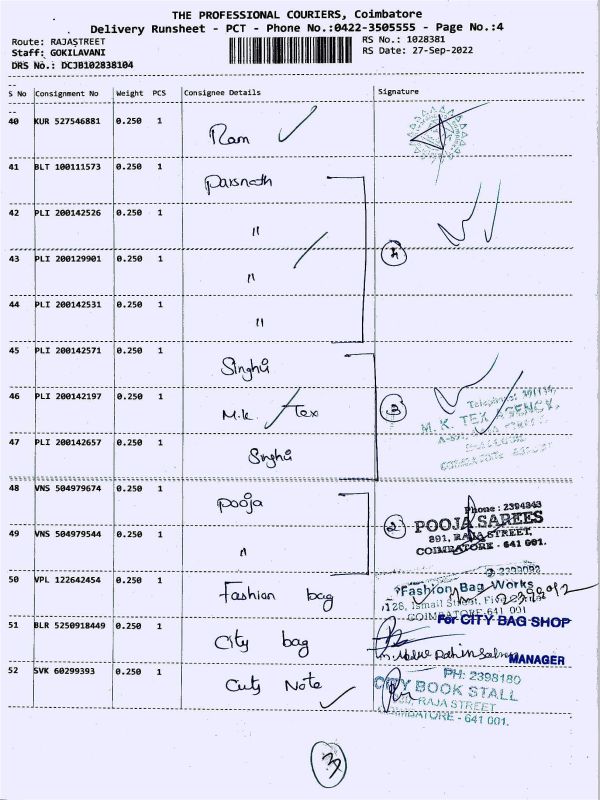 THE PROFESSIONAL COURIERS, Coimbatore
Delivery Runsheet - PCT - Phone No.:0422-3505555 - Page No.:4
Route: RAJASTREET
RS No.: 1028381
Staff: GOKILAVANI
RS Date: 27-Sep-2022
DRS No.: DCJB102838104
S No Consignment No Weight PCS Consignee Details Signature
40 KUR 527546881 0.250 1 Ram
41 BLT 100111573 0.250 1 Parsnath
42 PLI 200142526 0.250 1 "
43 PLI 200129901 0.250 1 "
4
44 PLI 200142531 0.250 1 "
45 PLI 200142571 0.250 1 Singhvi
46 PLI 200142197 0.250 1 M.K. Tex
3
M. K. TEX AGENCY,
47 PLI 200142657 0.250 1 Singhvi
48 VNS 504979674 0.250 1 Pooja
2
Phone : 2394343
POOJA SAREES
891, RAJA STREET,
COIMBATORE - 641 001.
49 VNS 504979544 0.250 1 "
50 VPL 122642454 0.250 1 Fashion bag
Fashion Bag Works
COIMBATORE-641 001
51 BLR 5250918449 0.250 1 City bag
For CITY BAG SHOP
MANAGER
52 SVK 60299393 0.250 1 Cuty Note
PH: 2398180
CITY BOOK STALL
RAJA STREET
COIMBATORE - 641 001.